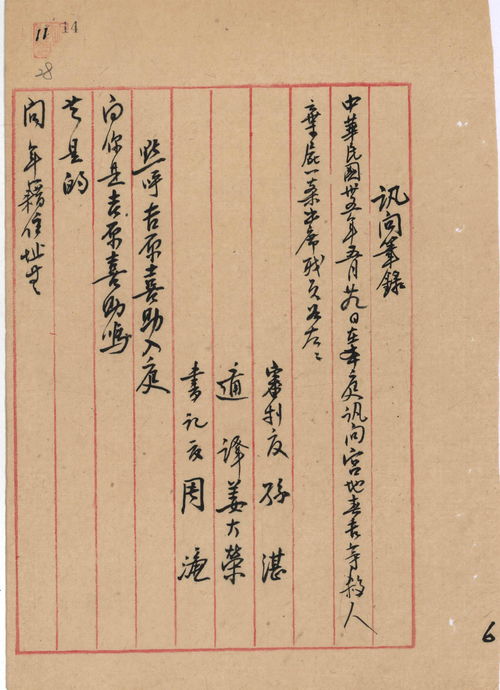 訊問筆錄
中華民國卅五年五月廿九日在本庭訊問宮地春吉等殺人
棄屍一案出席職員如左：
審判官 孫湛
通譯 姜大榮
書記官 周濂
點呼吉原喜助入庭
問 你是吉原喜助嗎
答 是的
問 年籍住址等
11
14
28
6